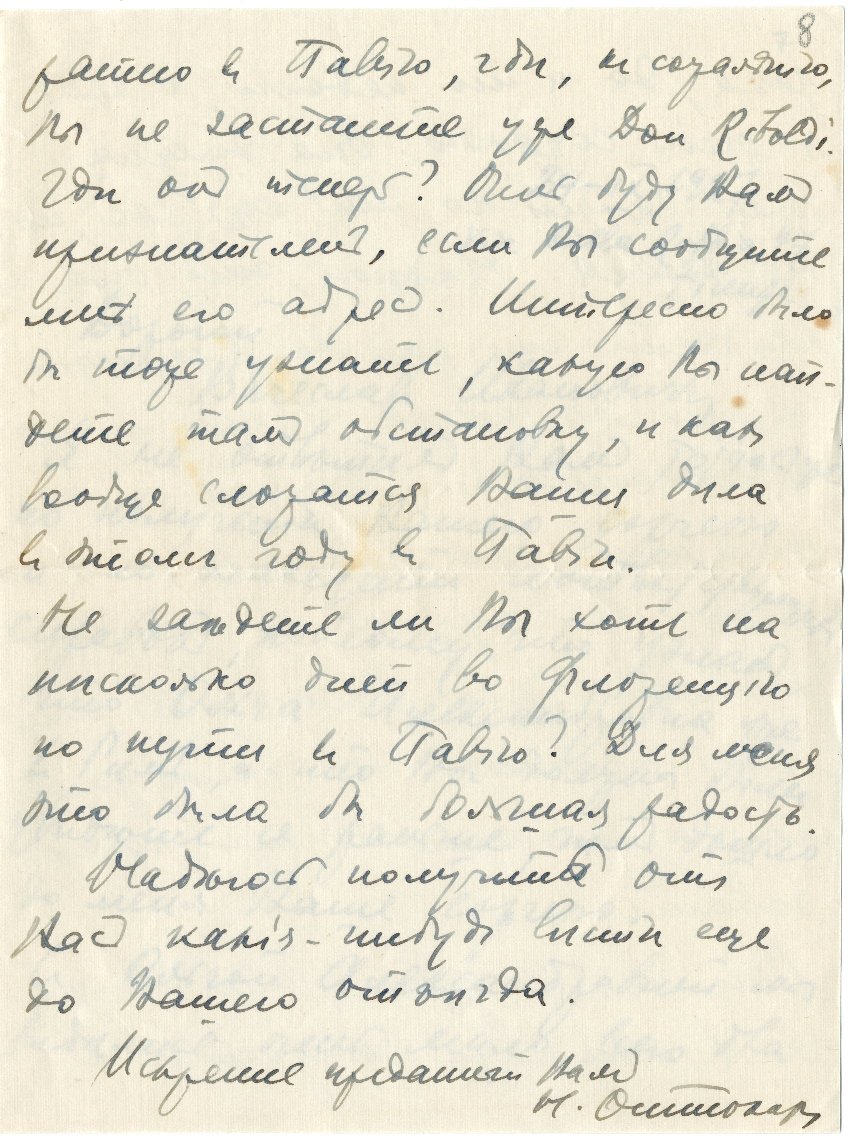 8
ратно в Павiю, где, к сожалѣнiю,
Вы не застанете уже Don Riboldi.
Гдѣ онъ теперь? Очень буду Вамъ
признателенъ, если Вы сообщите
мнѣ его адресъ. Интересно было
бы тоже узнать, какую Вы най-
дете тамъ обстановку, и какъ
вообще сложатся Ваши дѣла
в этомъ году в Павiи.
Не заѣдете ли Вы хоть на
нѣсколько дней во Флоренцiю
по пути в Павiю? Для меня
это была бы большая радость.
Надѣюсь получить отъ
Васъ какiя-нибудь вѣсти еще
до Вашего отъѣзда.
Искренне преданный Вамъ
Н. Оттокаръ